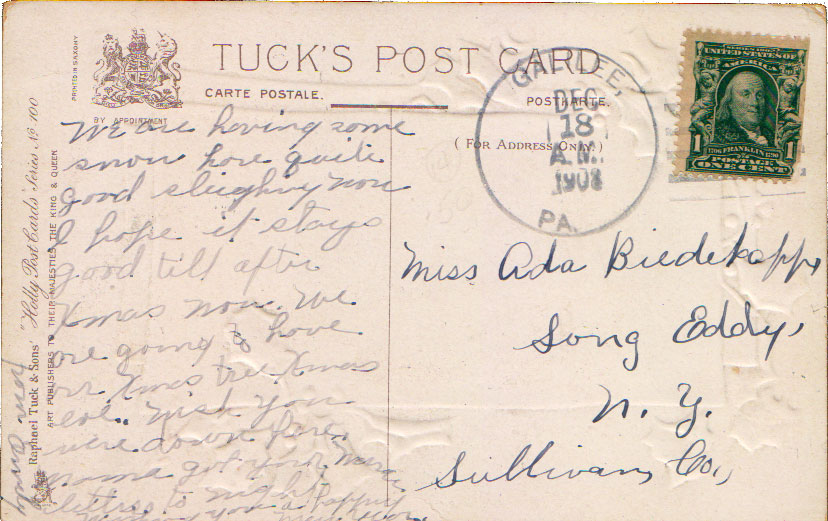 TUCK'S POST CARD
CARTE POSTALE.
POSTKARTE.
(FOR ADDRESS ONLY.)
BY APPOINTMENT
PRINTED IN SAXONY
Raphael Tuck & Sons' "Holly Post Cards" Series No 100
ART PUBLISHERS TO THEIR MAJESTIES THE KING & QUEEN
DEC
18
A.M.
1908
PA.
SERIES 1902
UNITED STATES OF
AMERICA
1706 FRANKLIN 1790
1 POSTAGE 1
ONE CENT
We are having some
snow here quite
good sleighing now
I hope it stays
good till after
Xmas now. We
are going to have
our Xmas tree Xmas
eve. Wish you
were down here.
mama got your
letters to night
Wishing you a happy
New Year
Miss Ada Biedekapp,
Long Eddy,
N. Y.
Sullivan, Co.,